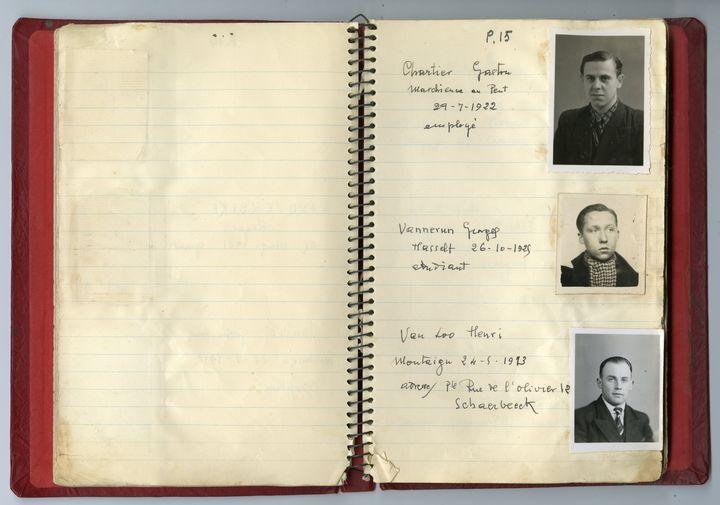 P. 15
Chartier Gaston
Marchienne au Pont
29-7-1922
employé
Vannerun Georges
Hasselt 26-10-1925
étudiant
Van Loo Henri
Montaigu 24-5-1923
Rue de l'olivier 12
Schaerbeeck